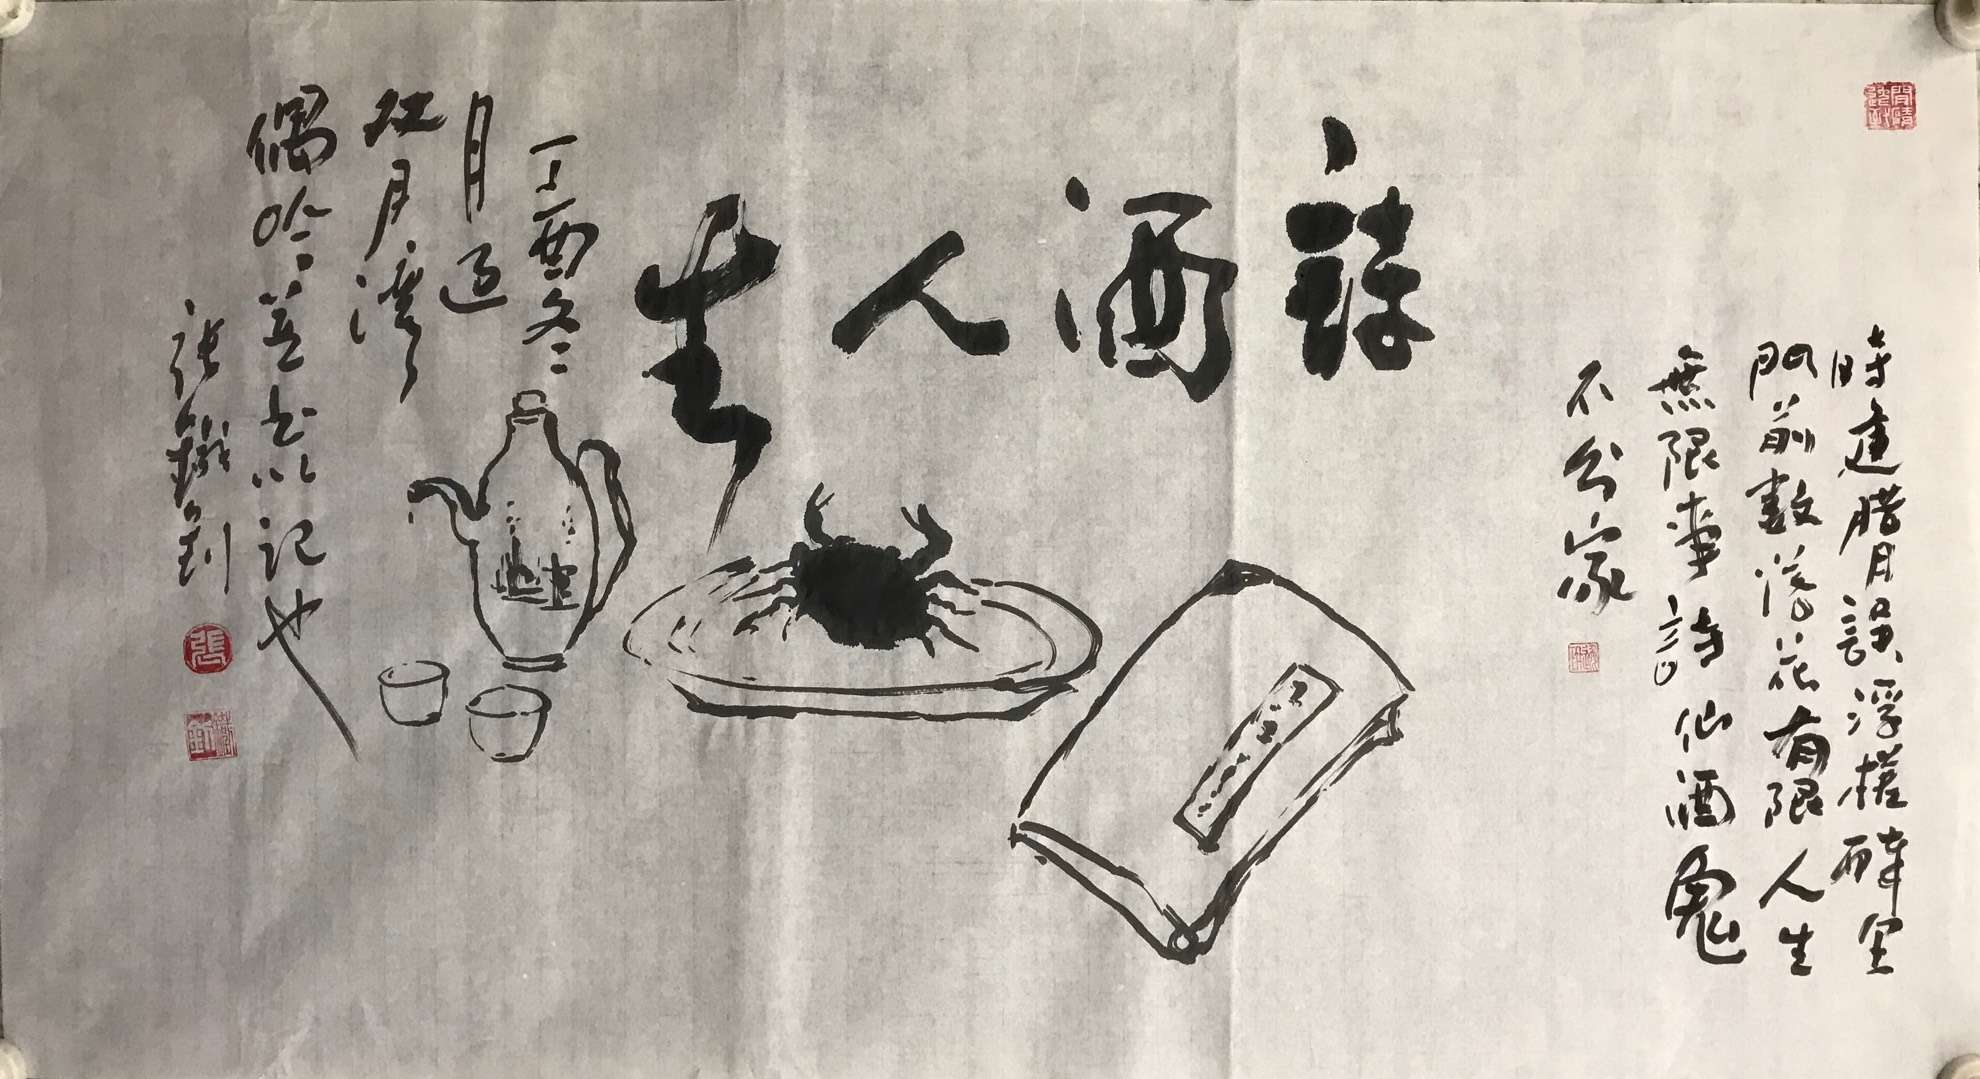 詩酒人生
時逢腊月誤浮槎醉里
門前數落花有限人生
無限事詩仙酒鬼
不分家
丁酉冬
月過
江月灣
偶吟並書以記也
張鐵釗
張